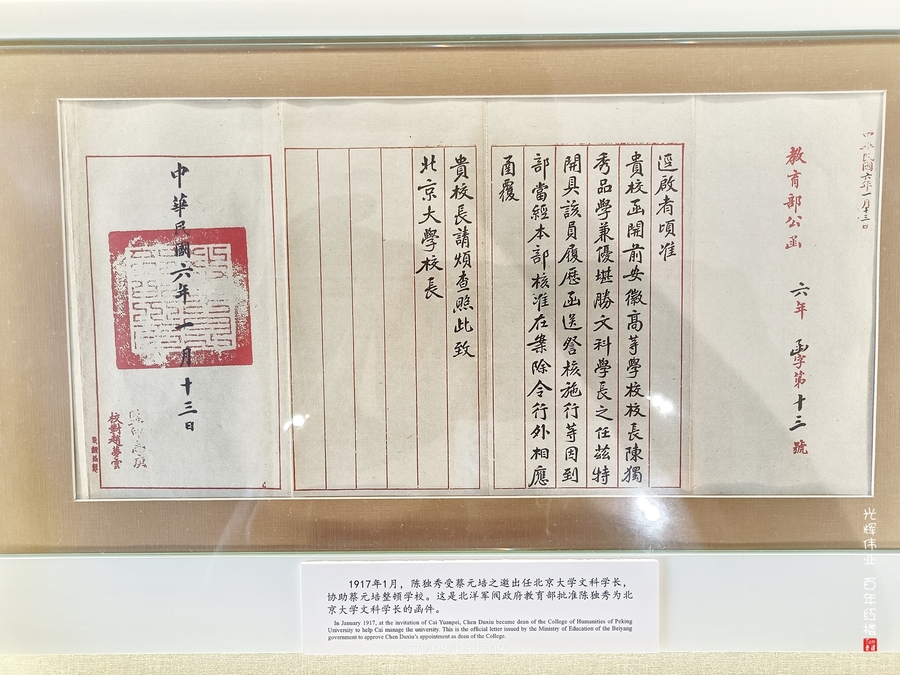 中華民國六年一月十三日
教育部公函 六年 函字第十三號
逕啟者頃准
貴校函開前安徽高等學校校長陳獨
秀品學兼優堪勝文科學長之任茲特
開具該員履歷函送詧核施行等因到
部當經本部核准在案除令行外相應
函覆
貴校長請煩查照此致
北京大學校長
中華民國六年一月十三日
校對趙夢雲
1917年1月，陈独秀受蔡元培之邀出任北京大学文科学长，
协助蔡元培整顿学校。这是北洋军阀政府教育部批准陈独秀为北
京大学文科学长的函件。
In January 1917, at the invitation of Cai Yuanpei, Chen Duxiu became dean of the College of Humanities of Peking
University to help Cai manage the university. This is the official letter issued by the Ministry of Education of the Beiyang
government to approve Chen Duxiu's appointment as dean of the College.
光辉伟业 百年红楼